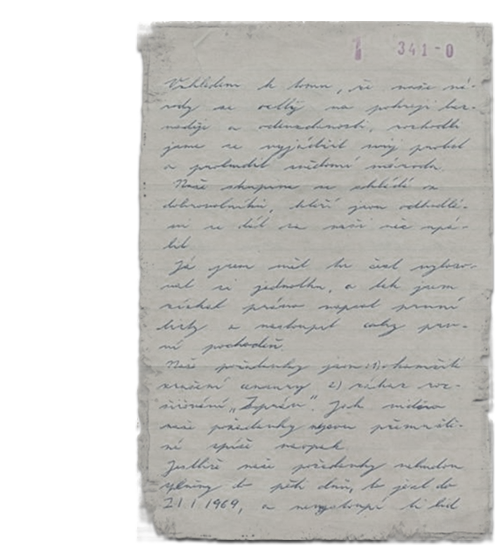 341-0
Vzhledem k tomu, že naše ná-
rody se octly na pokraji bez-
naděje a odevzdanosti, rozhodli
jsme se vyjádřit svůj protest
a probudit svědomí národa.
Naše skupina se skládá z
dobrovolníků, kteří jsou odhodlá-
ni se dát za naši věc upá-
lit.
Já jsem měl tu čest vyloso-
vat si jedničku, a tak jsem
získal právo napsat první
listy a nastoupit coby prv-
ní pochodeň.
Naše požadavky jsou: 1) okamžité
zrušení cenzury 2) zákaz roz-
šiřování „Zpráv“. Jak vidíte
naše požadavky nejsou přemršti-
né spíše naopak.
Jestliže naše požadavky nebudou
splněny do pěti dnů, to jest do
21.1.1969, a nevystoupí-li lid